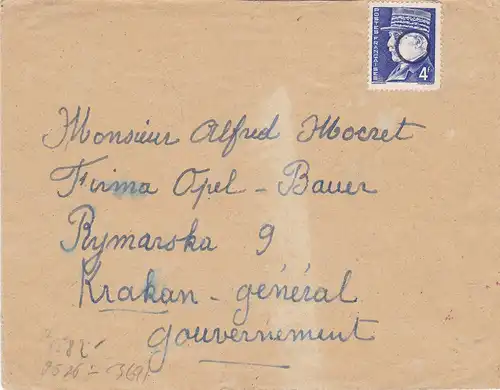 POSTES FRANÇAISES
4F
Monsieur Alfred Mocret
Firma Opel - Bauer
Rymarska 9
Krakan - général
gouvernement